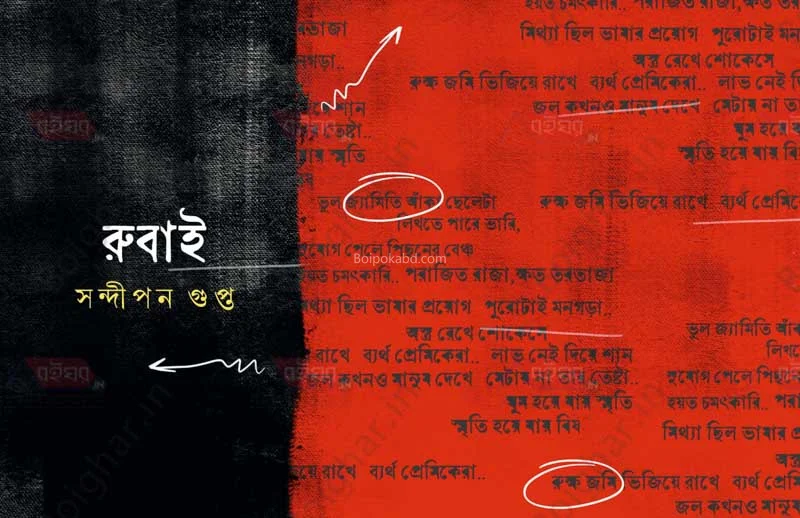 হয়ত চমৎকারি.. পরাজিত রাজা,ক্ষত তরতাজা
মিথ্যা ছিল ভাষার প্রয়োগ পুরোটাই
অস্ত্র রেখে শোকেসে
রুক্ষ জমি ভিজিয়ে রাখে ব্যর্থ প্রেমিকেরা.. লাভ নেই
জল কখনও মানুষ দেখে মেটায় না
ঘুম হয়ে
স্মৃতি হয়ে যায় বিষ
ভুল জ্যামিতি আঁকা ছেলেটা রুক্ষ জমি ভিজিয়ে রাখে ব্যর্থ
লিখতে পারে ভারি,
রুবাই
সন্দীপন গুপ্ত
সুযোগ পেলে পিছনের বেঞ্চ
Boipokabd.com
হয়ত চমৎকারি.. পরাজিত রাজা,ক্ষত তরতাজা
মিথ্যা ছিল ভাষার প্রয়োগ পুরোটাই মনগড়া..
অস্ত্র রেখে শোকেসে ভুল জ্যামিতি আঁকা
রাখে ব্যর্থ প্রেমিকেরা.. লাভ নেই দিয়ে শ্মান
জল কখনও মানুষ দেখে মেটায় না তায় তেষ্টা.. সুযোগ পেলে
ঘুম হয়ে যায় স্মৃতি হয়ত চমৎকারি..
স্মৃতি হয়ে যায় বিষ মিথ্যা ছিল ভাষার
রাখে ব্যর্থ প্রেমিকেরা..
রুক্ষ জমি ভিজিয়ে রাখে ব্যর্থ
জল কখনও মানুষ
boighar.in